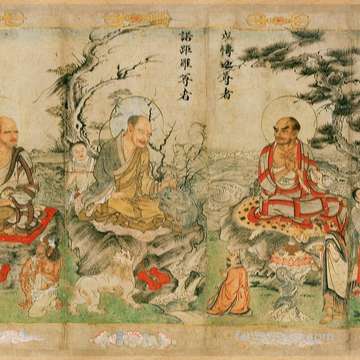 戍博迦尊者
諾距羅尊者